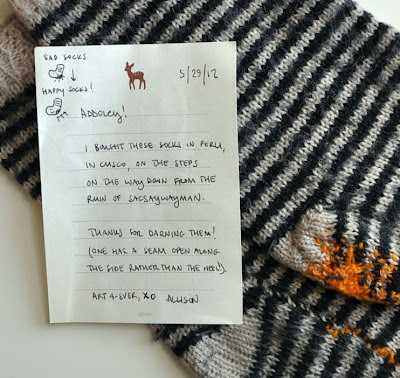 SAD SOCKS
5/29/12
HAPPY SOCKS!
ADDOLEY!
I BOUGHT THESE SOCKS IN PERU,
IN CUSCO, ON THE STEPS
ON THE WAY DOWN FROM THE
RUIN OF SACSAYWAYMAN.
THANKS FOR DARNING THEM!
(ONE HAS A SEAM OPEN ALONG
THE SIDE RATHER THAN THE HEEL).
ART 4-EVER, XO ALLISON